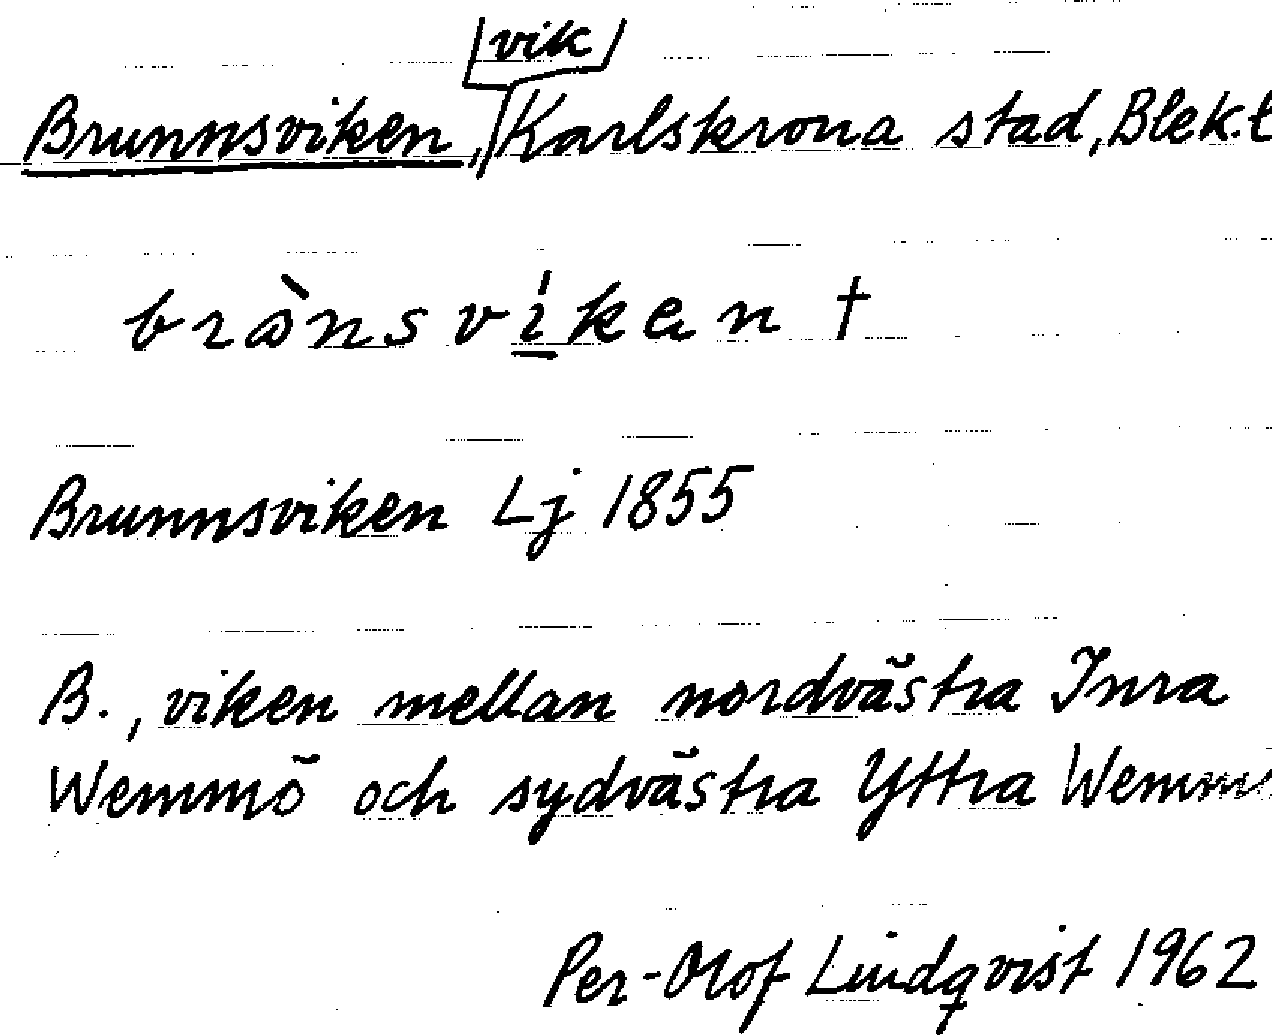 Brunnsviken, vik Karlskrona stad, Blek.l
brònsvíken †
Brunnsviken Lj 1855
B., viken mellan nordvästra Inra
Wemmö och sydvästra Yttra Wemmö
Per-Olof Lindqvist 1962